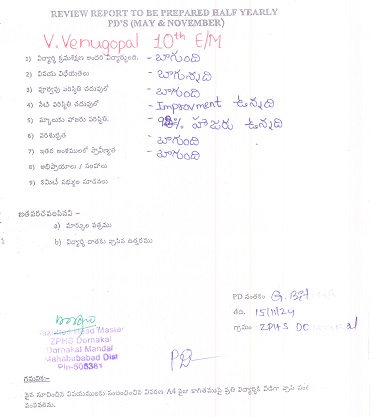 REVIEW REPORT TO BE PREPARED HALF YEARLY
PD'S (MAY & NOVEMBER)
V. Venugopal 10th E/M
1) విద్యార్థి క్రమశిక్షణ అందరి విద్యార్థులది. - బాగుంది
2) విషయ విధేయతలు - బాగున్నది
3) పూర్వపు పరిస్థితి చదువులో - బాగుంది
4) నేటి పరిస్థితి చదువులో - Improvment ఉన్నది
5) స్కూలుకు హాజరు పరిస్థితి. - 98% హాజరు ఉన్నది
6) పరిశుభ్రత - బాగుంది
7) ఇతర అంశములలో ప్రావీణ్యత - బాగుంది
8) అభిప్రాయాలు / సలహాలు
9) కమిటీ సభ్యుల సూచనలు
జతపరచవలసినవి :-
a) మార్కుల పత్రము
b) విద్యార్థి దాతకు వ్రాసిన ఉత్తరము
PD సంతకం G.
తేది. 15/11/24
గ్రామం ZPHS
Head Master
ZPHS Dornakal
Dornakal Mandal
Mahabubabad Dist
Pin-506381
గమనిక:-
పైన సూచించిన విషయములకు సంబంధించిన వివరణ A4 సైజు కాగితముపై ప్రతి విద్యార్థికి విడిగా వ్రాసి
పంపవలెను.